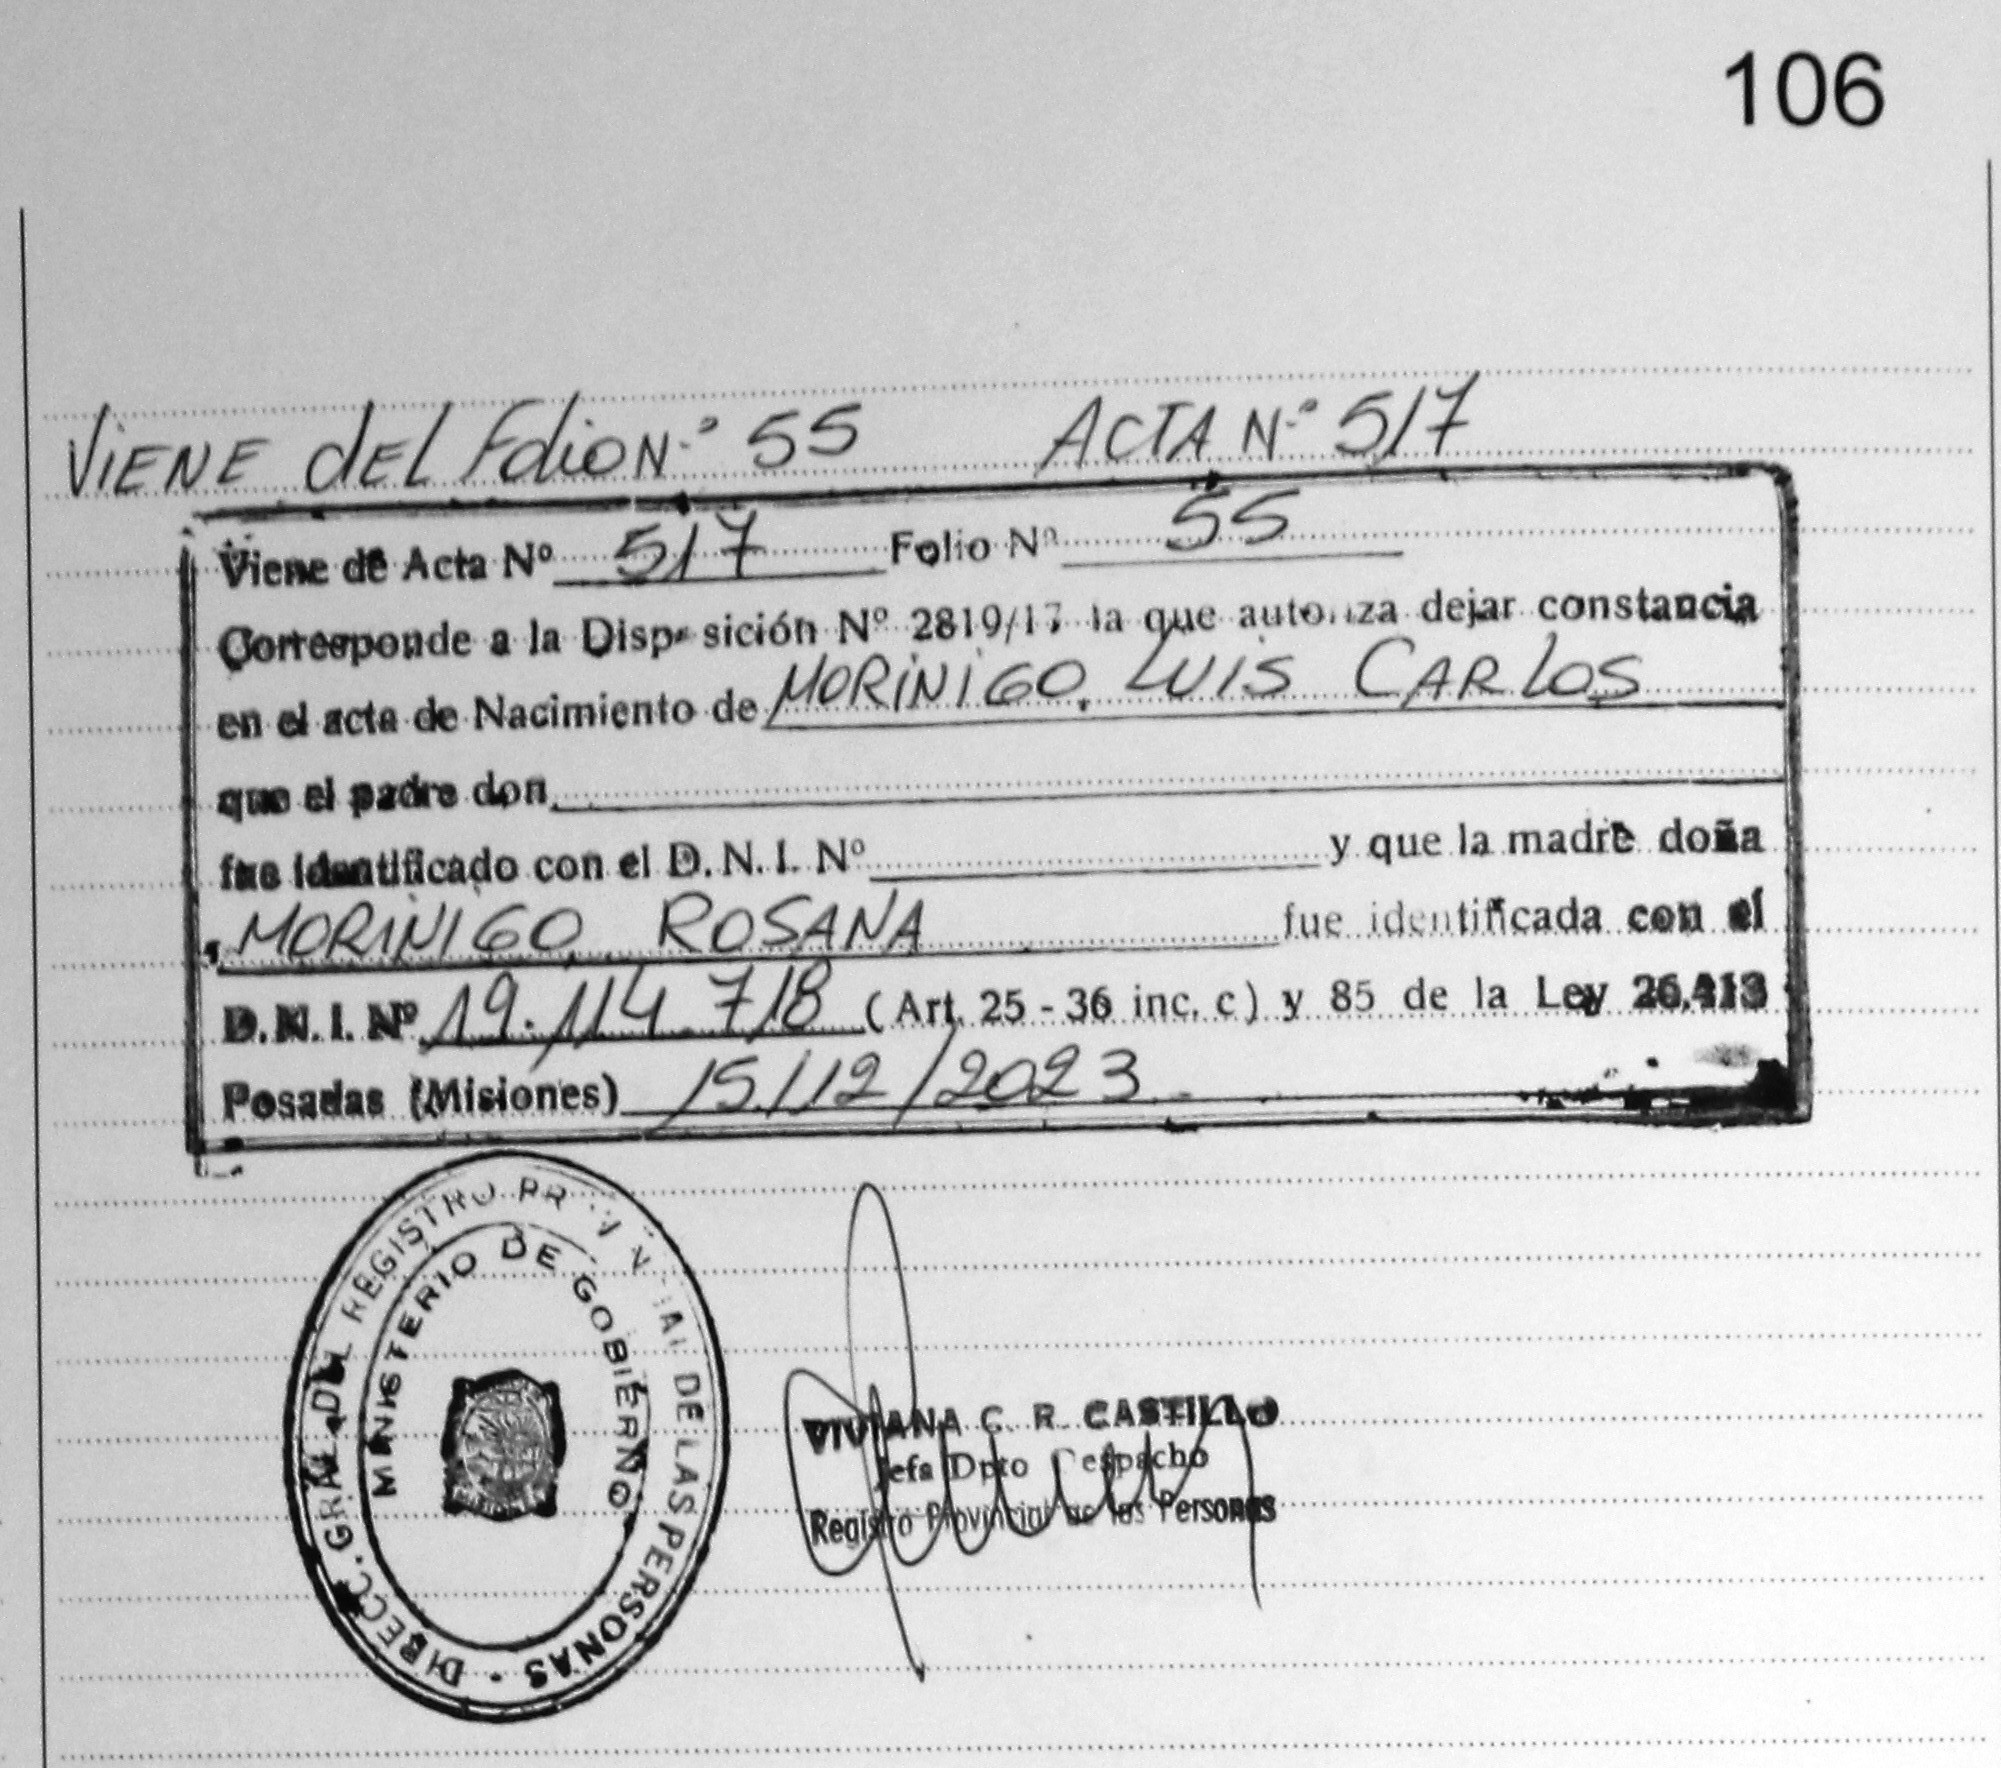 106
VIENE DEL FOLIO N.º 55 ACTA N.º 517
Viene de Acta Nº 517 Folio Nº 55
Corresponde a la Disp sición Nº 2819/17 la que autoriza dejar constancia
en el acta de Nacimiento de MORINIGO, LUIS CARLOS
que el padre don
fue identificado con el D.N.I. Nº y que la madre doña
MORINIGO, ROSANA fue identificada con el
D.N.I. Nº 19.114.718 (Art. 25 - 36 inc. c) y 85 de la Ley 26.413
Posadas (Misiones) 15/12/2023.-
DIRECC. GRAL. DEL REGISTRO PROVINCIAL DE LAS PERSONAS -
MINISTERIO DE GOBIERNO
VIVIANA C. R. CASTILLO
Jefa Dpto Despacho
Registro Provincial de las Personas